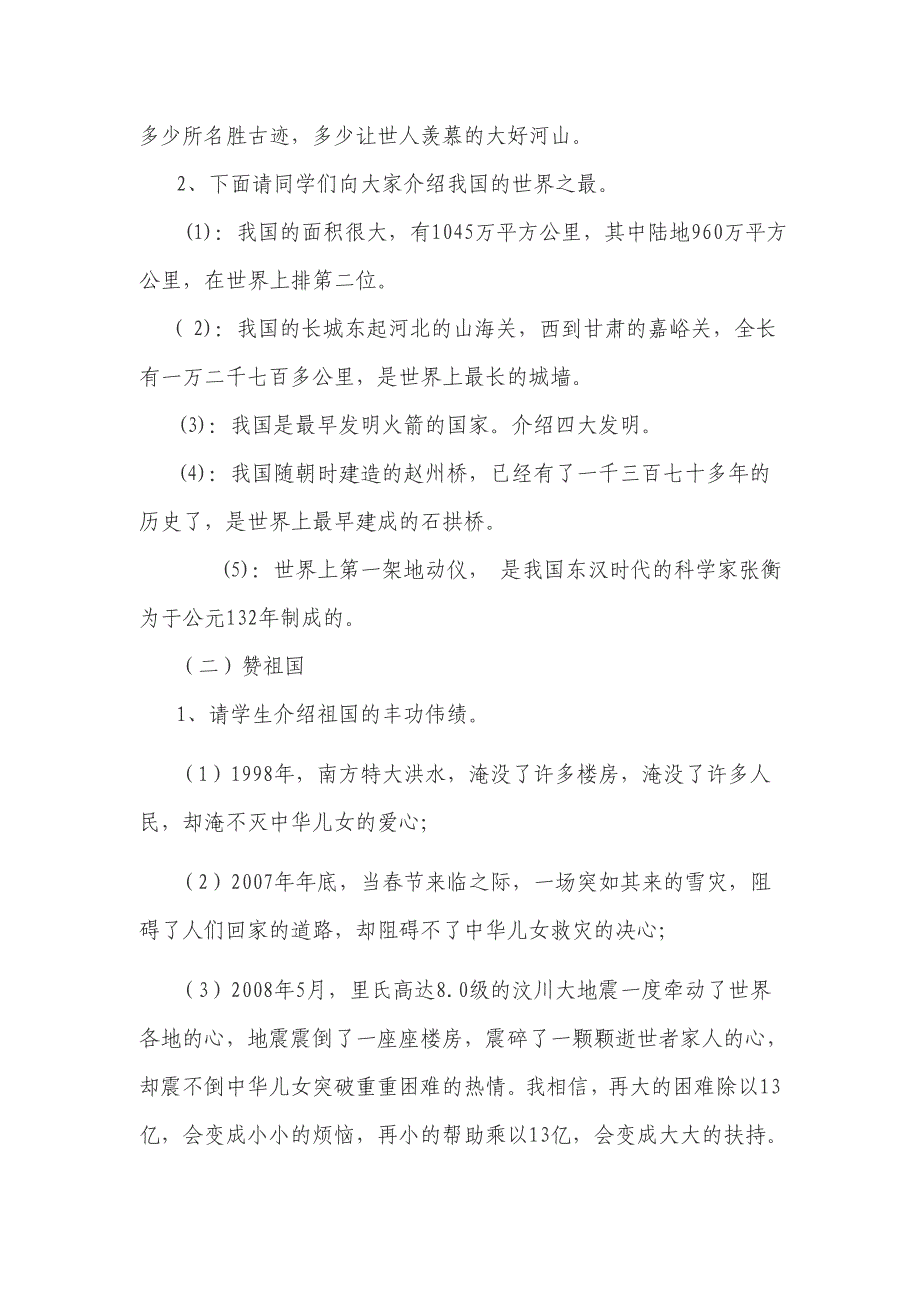 多少所名胜古迹，多少让世人羡慕的大好河山。
2、下面请同学们向大家介绍我国的世界之最。
(1)：我国的面积很大，有1045万平方公里，其中陆地960万平方
公里，在世界上排第二位。
( 2)：我国的长城东起河北的山海关，西到甘肃的嘉峪关，全长
有一万二千七百多公里，是世界上最长的城墙。
(3)：我国是最早发明火箭的国家。介绍四大发明。
(4)：我国随朝时建造的赵州桥，已经有了一千三百七十多年的
历史了，是世界上最早建成的石拱桥。
(5)：世界上第一架地动仪， 是我国东汉时代的科学家张衡
为于公元132年制成的。
（二）赞祖国
1、请学生介绍祖国的丰功伟绩。
（1）1998年，南方特大洪水，淹没了许多楼房，淹没了许多人
民，却淹不灭中华儿女的爱心；
（2）2007年年底，当春节来临之际，一场突如其来的雪灾，阻
碍了人们回家的道路，却阻碍不了中华儿女救灾的决心；
（3）2008年5月，里氏高达8.0级的汶川大地震一度牵动了世界
各地的心，地震震倒了一座座楼房，震碎了一颗颗逝世者家人的心，
却震不倒中华儿女突破重重困难的热情。我相信，再大的困难除以13
亿，会变成小小的烦恼，再小的帮助乘以13亿，会变成大大的扶持。